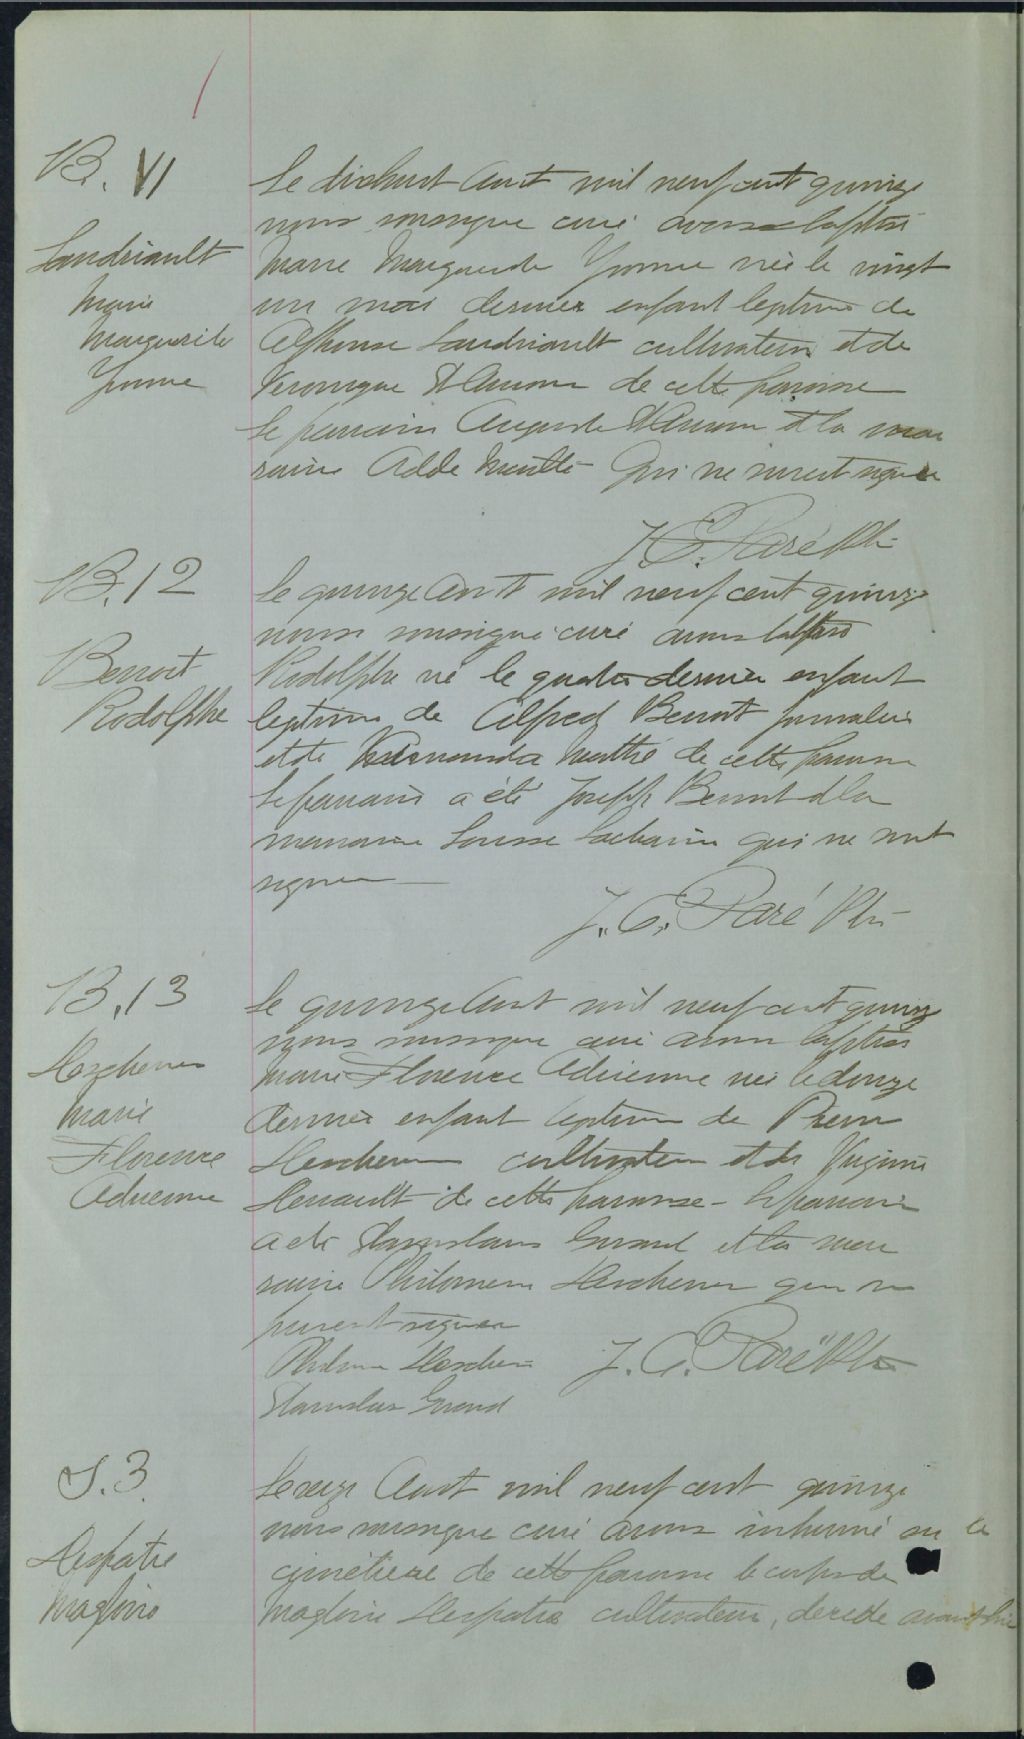 B. VI
Landriault
Marie
Marguerite
Yvonne
Le dixhuit Aout mil neuf cent quinze
nous soussigne curé avons baptisé
Marie Marguerite Yvonne née le vingt
un mai dernier enfant legitime de
Alphonse Landriault cultivateur et de
Veronique de cette paroisse
Le parrain Auguste et la mar
raine Adele qui ne surent signer
J. E. Paré Ptr
B. 12
Benoit
Rodolphe
Le quinze Aout mil neuf cent quinze
nous soussigné curé avons baptisé
Rodolphe né le quatre dernier enfant
legitime de Alfred Benoit journalier
et de de cette paroisse
Le parrain a été Joseph Benoit et la
marraine Louise qui ne surent
signer
J. E. Paré Ptr
B. 13
Deschenes
Marie
Florence
Adrienne
Le quinze Aout mil neuf cent quinze
nous soussigne curé avons baptisé
Marie Florence Adrienne née le douze
dernier enfant legitime de Pierre
Deschenes cultivateur et de
de cette paroisse - Le parrain
a été Stanislaus et la mar
raine Philomene Deschenes qui
signer
Philomene Deschenes J. E. Paré Ptr
Stanislas
S. 3
Despatie
Magloire
Le seize Aout mil neuf cent quinze
nous soussigne curé avons inhumé au le
cimetiere de cette paroisse le corps de
Magloire Despatie cultivateur, decede avant hier